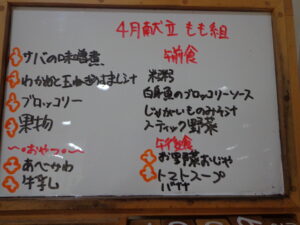 4月献立 もも組
サバの味噌煮
わかめと玉ねぎのすまし汁
ブロッコリー
果物
〜・おやつ・〜
あべかわ
牛乳
午前食
米粥
白身魚のブロッコリーソース
じゃがいものみそ汁
スティック野菜
午後食
お野菜おじや
トマトスープ
バナナ